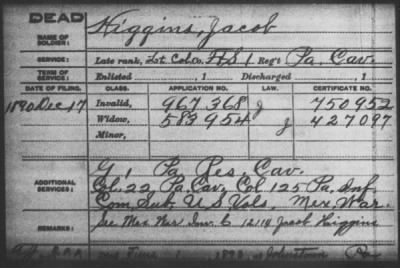 DEAD
NAME OF SOLDIER: Higgins, Jacob
SERVICE: Late rank, Lt. Col. Co. F&S, 1 Reg't Pa. Cav.
TERM OF SERVICE: Enlisted , 1 Discharged , 1
DATE OF FILING. CLASS. APPLICATION NO. LAW. CERTIFICATE NO.
1890 Dec 17 Invalid, 967.368 J 750952
Widow, 583954 J 427097
Minor,
G, 1 Pa Res. Cav.
ADDITIONAL SERVICES: Col. 22, Pa. Cav, Col 125 Pa. Inf.
Com. Sub. U S Vols, Mex. War.
REMARKS: See Mex War Inv. C 12114 Jacob Higgins
Johnstown Pa